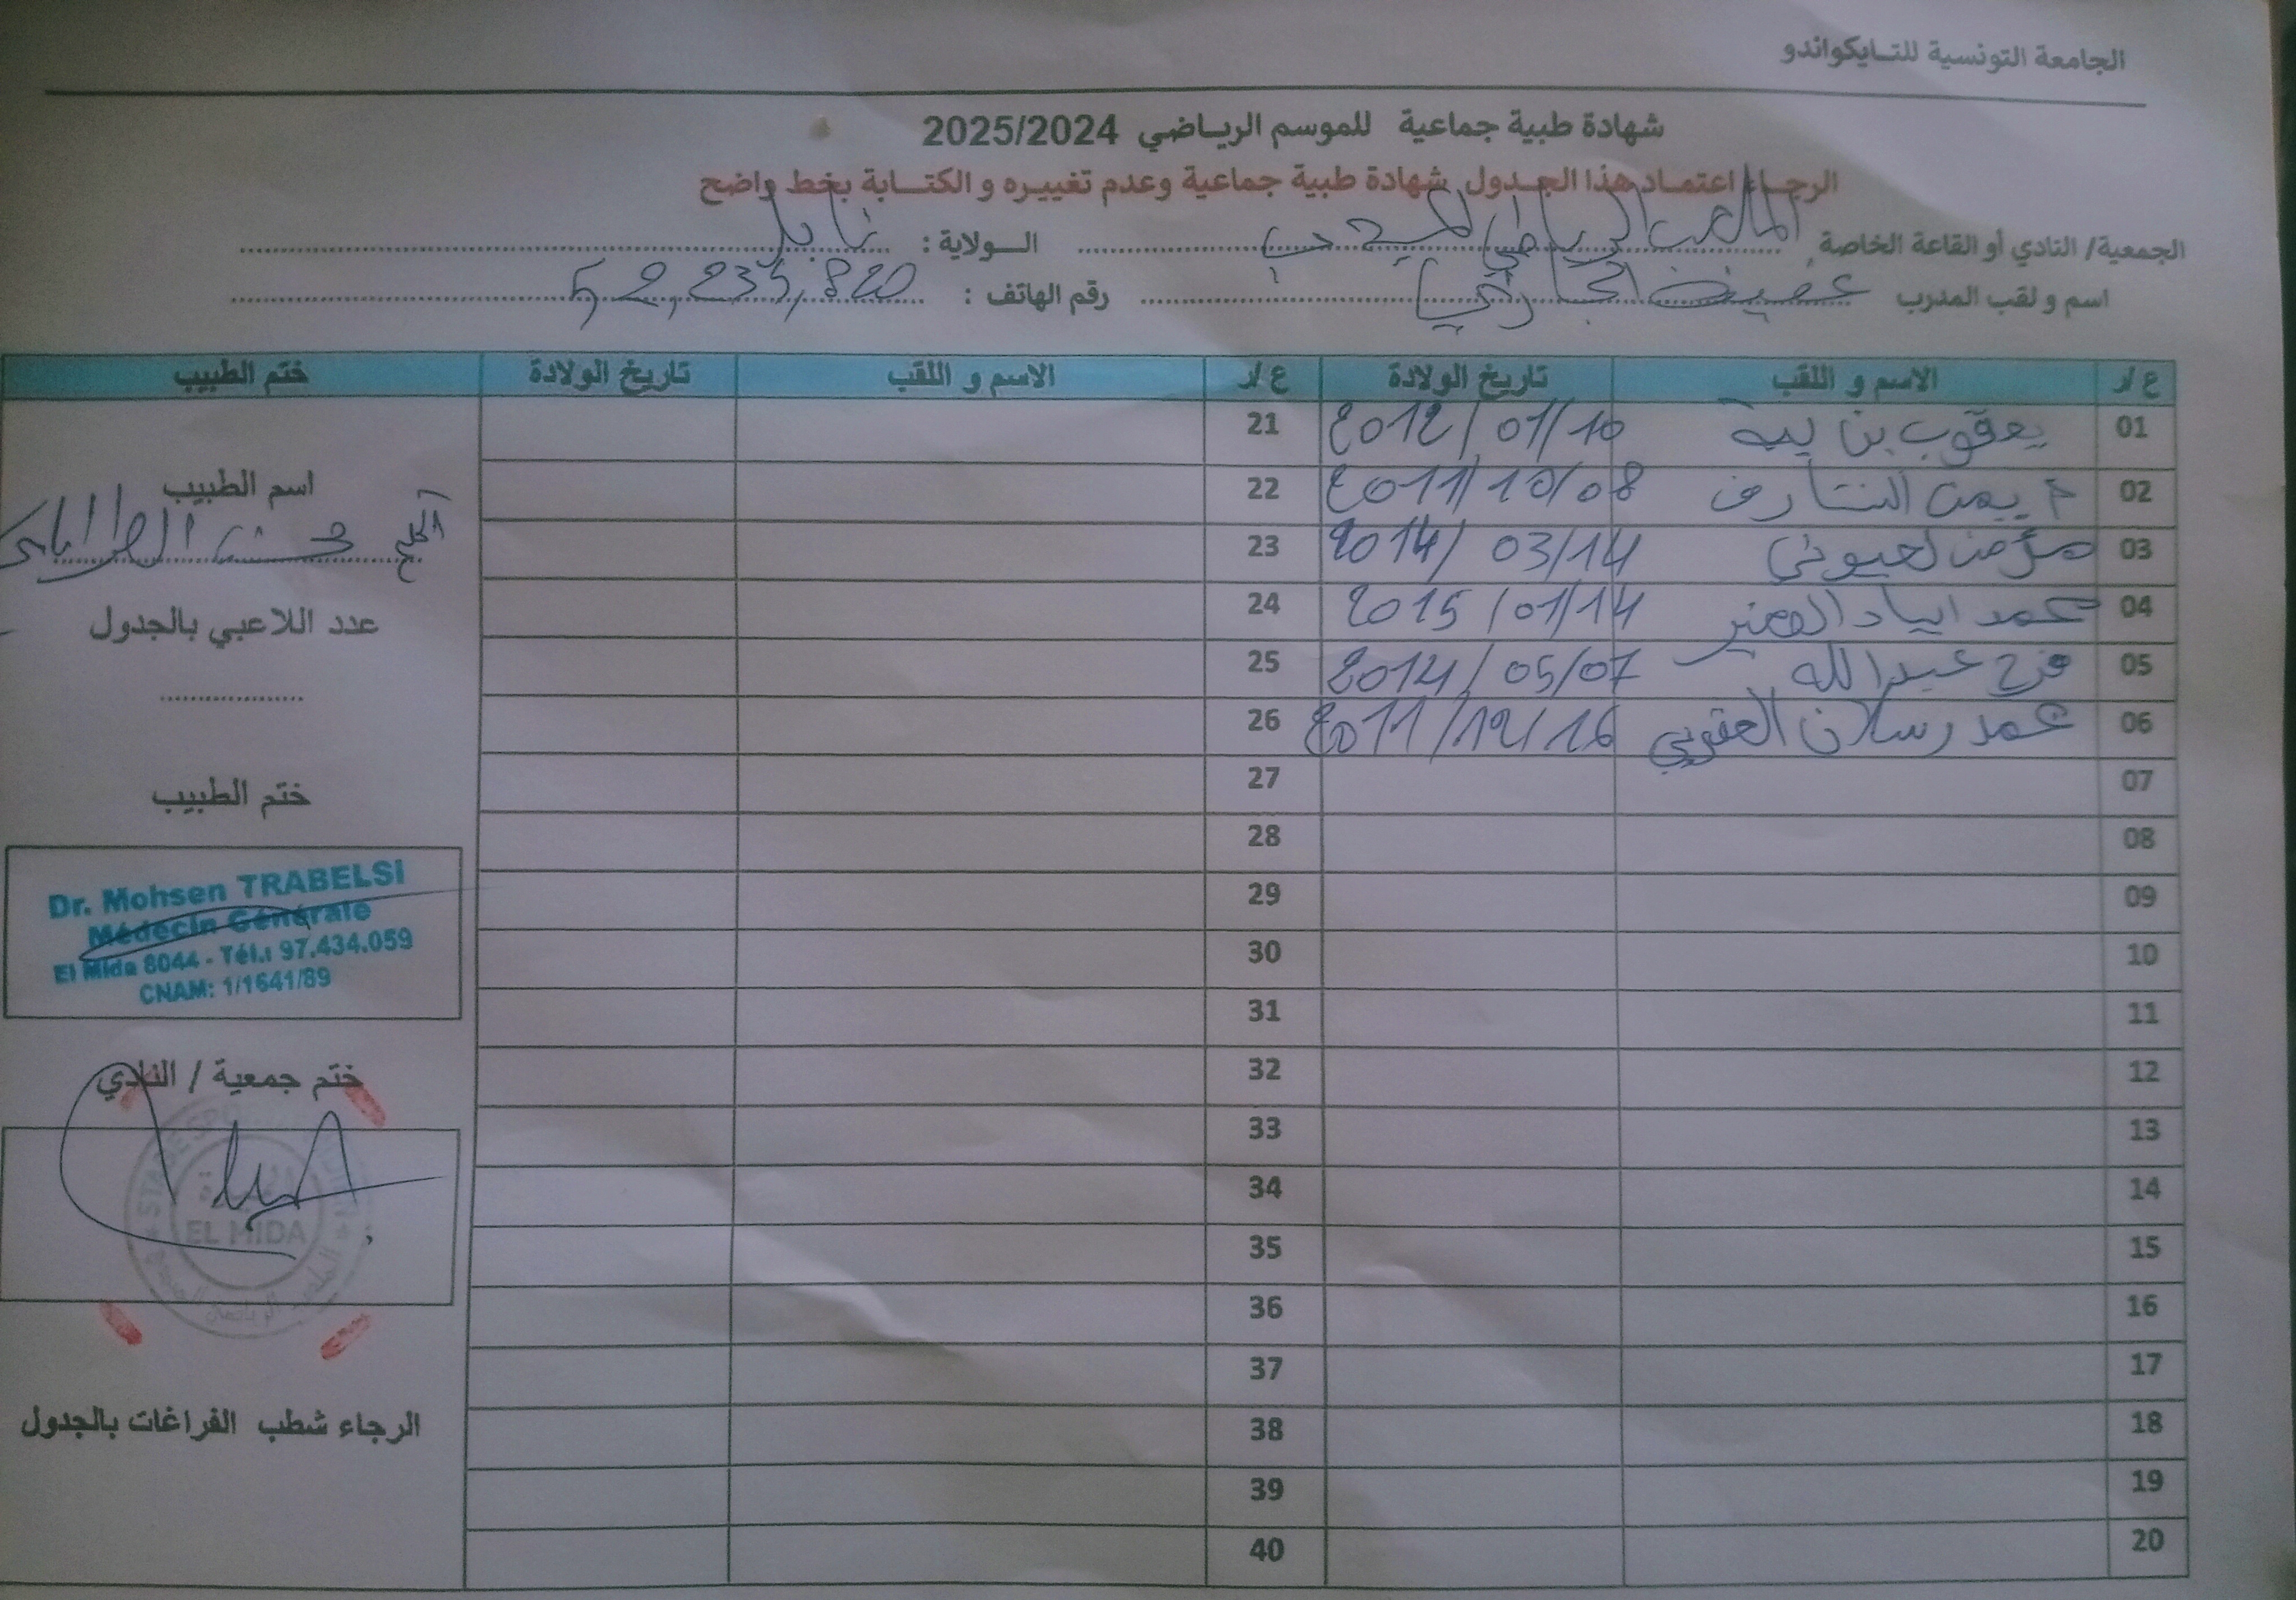 الجامعة التونسية للتايكواندو
شهادة طبية جماعية للموسم الرياضي 2025/2024
الرجاء اعتماد هذا الجدول شهادة طبية جماعية وعدم تغييره و الكتابة بخط واضح
الجمعية/ النادي أو القاعة الخاصة الملعب الرياضي الولاية : نابل
اسم و لقب المدرب رقم الهاتف : 52,235,820
ع/ر الاسم و اللقب تاريخ الولادة ع/ر الاسم و اللقب تاريخ الولادة ختم الطبيب
01 يعقوب بن 2012/01/10 21
02 2011/10/08 22
03 مؤمن لعيوني 2014/03/14 23
04 محمد اياد 2015/01/14 24
05 فرح عبد الله 2014/05/07 25
06 محمد رسلان العقوبي 2011/12/16 26
07 27
08 28
09 29
10 30
11 31
12 32
13 33
14 34
15 35
16 36
17 37
18 38
19 39
20 40
اسم الطبيب
محسن الطرابلسي
عدد اللاعبي بالجدول
ختم الطبيب
Dr. Mohsen TRABELSI
Médecin Générale
El Mida 8044 - Tél.: 97.434.059
CNAM: 1/1641/89
ختم جمعية / النادي
EL MIDA
الرجاء شطب الفراغات بالجدول